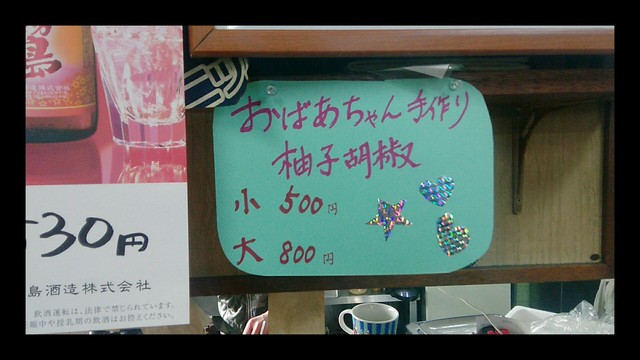 島
おばあちゃん手作り
柚子胡椒
小 500円
大 800円
30円
島酒造株式会社
飲酒運転は、法律で禁じられています。
娠中や授乳期の飲酒はお控えください。